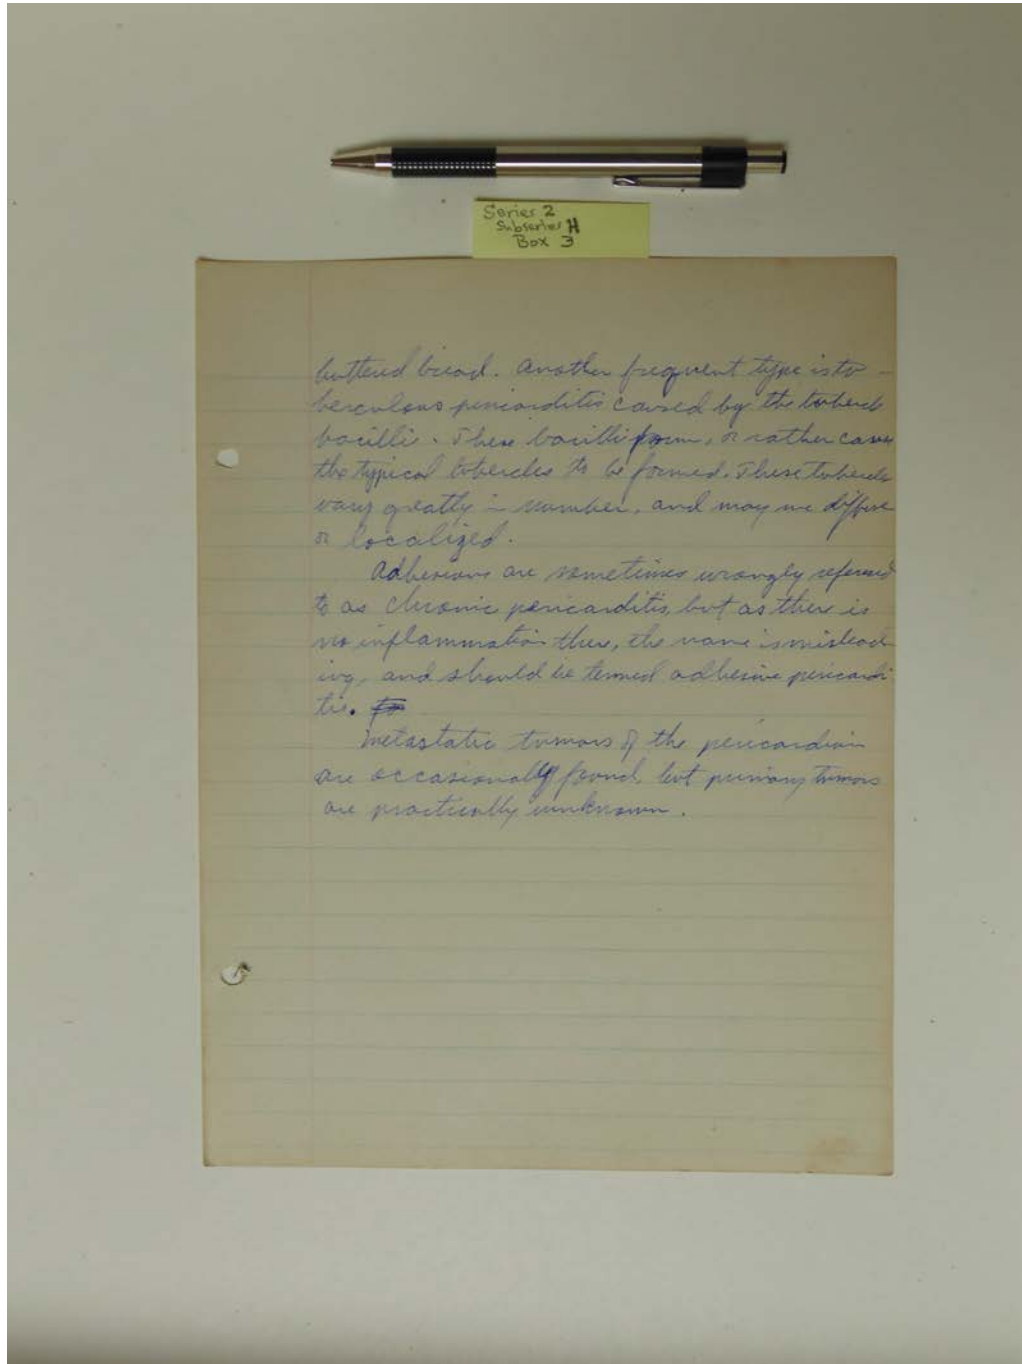 Series 2
Subseries H
Box 3
buttered bread. Another frequent type is tu-
berculous pericarditis caused by the tubercle
bacilli. These bacilli form, or rather cause
the typical tubercles to be formed. These tubercles
vary greatly in number, and may be diffuse
or localized.
Adhesions are sometimes wrongly referred
to as chronic pericarditis, but as there is
no inflammation there, the name is mislead-
ing, and should be termed adhesive pericardi-
tis.
Metastatic tumors of the pericardium
are occasionally found, but primary tumors
are practically unknown.